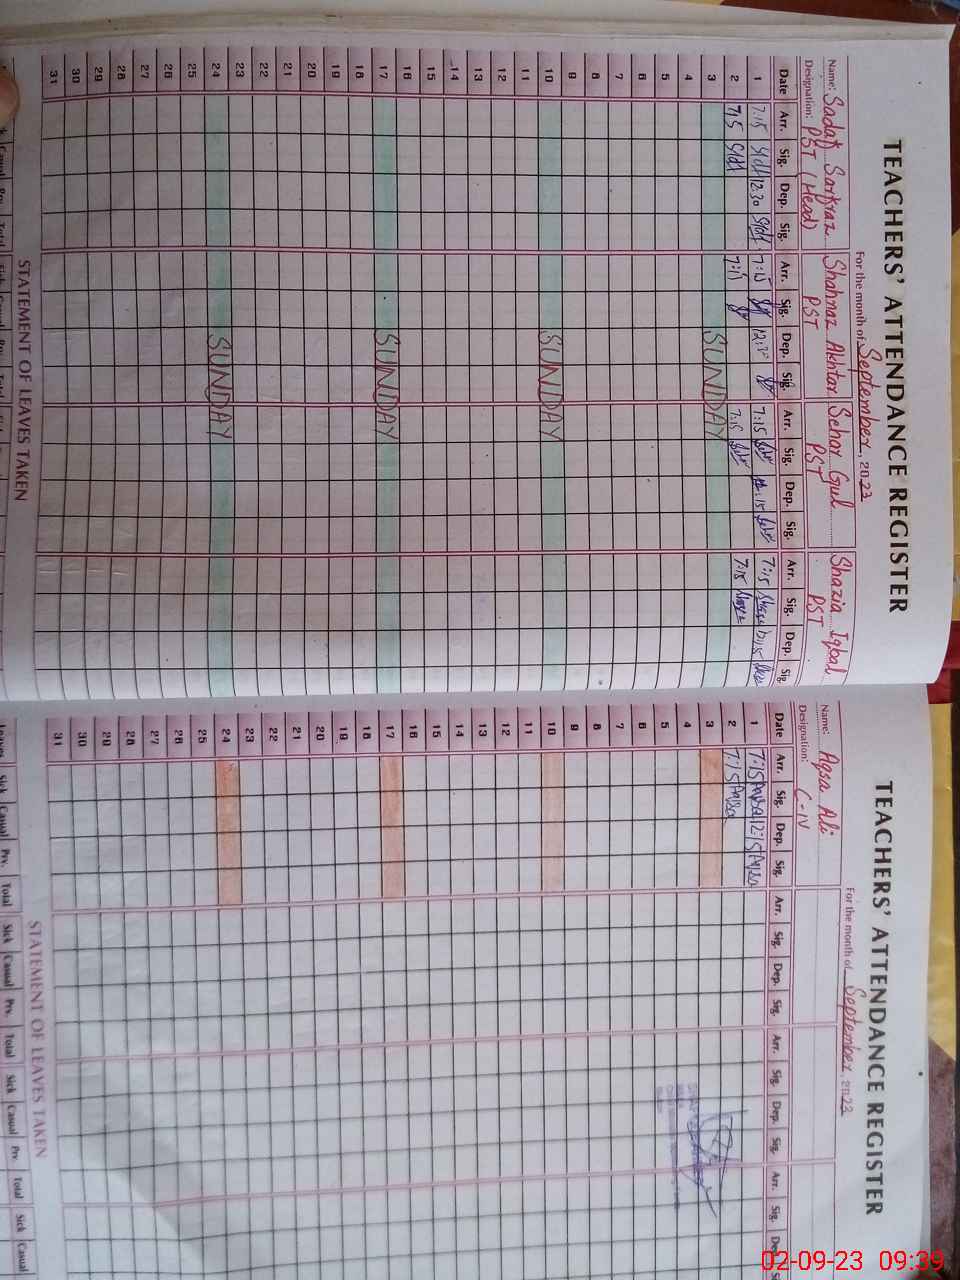 TEACHERS' ATTENDANCE REGISTER
For the month of September, 2023
Name: Sadaf Sarfraz Shahnaz Akhtar Sehar Gul Shazia Iqbal
Designation: PST (Head) PST PST PST
Date Arr. Sig. Dep. Sig. Arr. Sig. Dep. Sig. Arr. Sig. Dep. Sig. Arr. Sig. Dep. Sig.
1 7:15 12:30 7:15 12:30 7:15 12:15 7:15 12:15
2 7:15 7:15 7:15 7:15
3 SUNDAY
4
5
6
7
8
9
10 SUNDAY
11
12
13
14
15
16
17 SUNDAY
18
19
20
21
22
23
24 SUNDAY
25
26
27
28
29
30
31
STATEMENT OF LEAVES TAKEN
TEACHERS' ATTENDANCE REGISTER
For the month of September, 2023
Name: Aqsa Ali
Designation: C-IV
Date Arr. Sig. Dep. Sig. Arr. Sig. Dep. Sig. Arr. Sig. Dep. Sig. Arr. Sig.
1 7:15 Aqsa 12:15 Aqsa
2 7:15 Aqsa
3
4
5
6
7
8
9
10
11
12
13
14
15
16
17
18
19
20
21
22
23
24
25
26
27
28
29
30
31
STATEMENT OF LEAVES TAKEN
Sick Casual Prv. Total Sick Casual Prv. Total Sick Casual Prv. Total Sick Casual
02-09-23 09:39